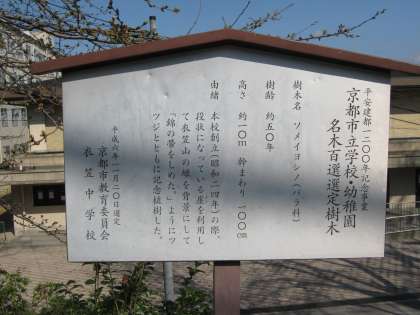 平安建都一二〇〇年記念事業
京都市立学校・幼稚園
名木百選選定樹木
樹木名　ソメイヨシノ（バラ科）
樹齢　約五〇年
高さ　約一〇m　幹まわり　一〇〇cm
由緒　本校創立（昭和二四年）の際、
段状になっている崖を利用し
て衣笠山の緑を背景にして
「錦の帯をしめた。」ようにツ
ツジとともに記念植樹した。
平成六年一一月二〇日選定
京都市教育委員会
衣笠中学校